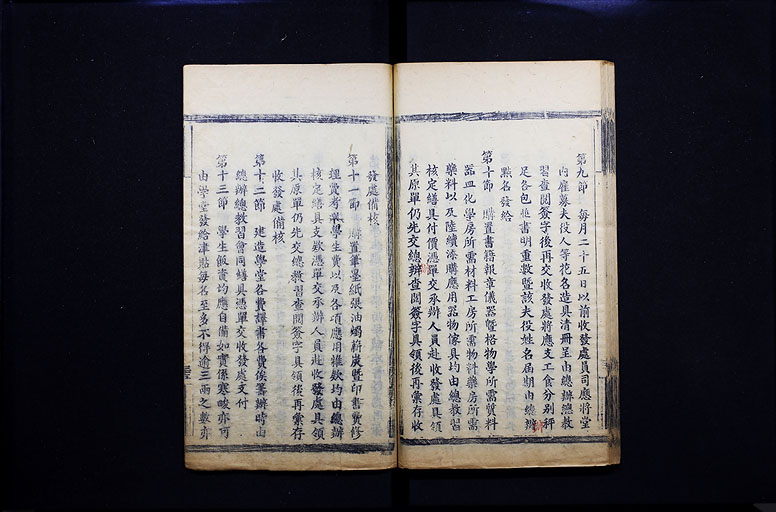 第九節　每月二十五日以前收發處員司應將堂
內雇募夫役人等花名造具清冊呈由總辦總教
習畫閱簽字後再交收發處將應支工食分別秤
足各包艇書明重數暨該夫役姓名屆期由總辦
點名發給
第十節　購置書籍報章儀器暨格物學所需質料
器皿化學房所需材料工房所需物料藥房所需
藥料以及陸續添購應用器物傢具均由總教習
核定繕具付價憑單交承辦人員赴收發處具領
其原單仍先交總辦查閱簽字具領後再彙存收
發處備核
第十一節　購置筆墨紙張油燭薪炭暨印書費修
理費考學生費以及各項應用雜款均由總辦
核定繕具支款憑單交承辦人員赴收發處具領
其原單仍先交總教習查閱簽字具領後再彙存
收發處備核
第十二節　建造學堂各費譯書各費俟籌辦時由
總辦總教習會同繕具憑單交收發處支付
第十三節　學生飯資均應自備如實係寒畯亦可
由學堂發給津貼每名至多不得逾三兩之數亦